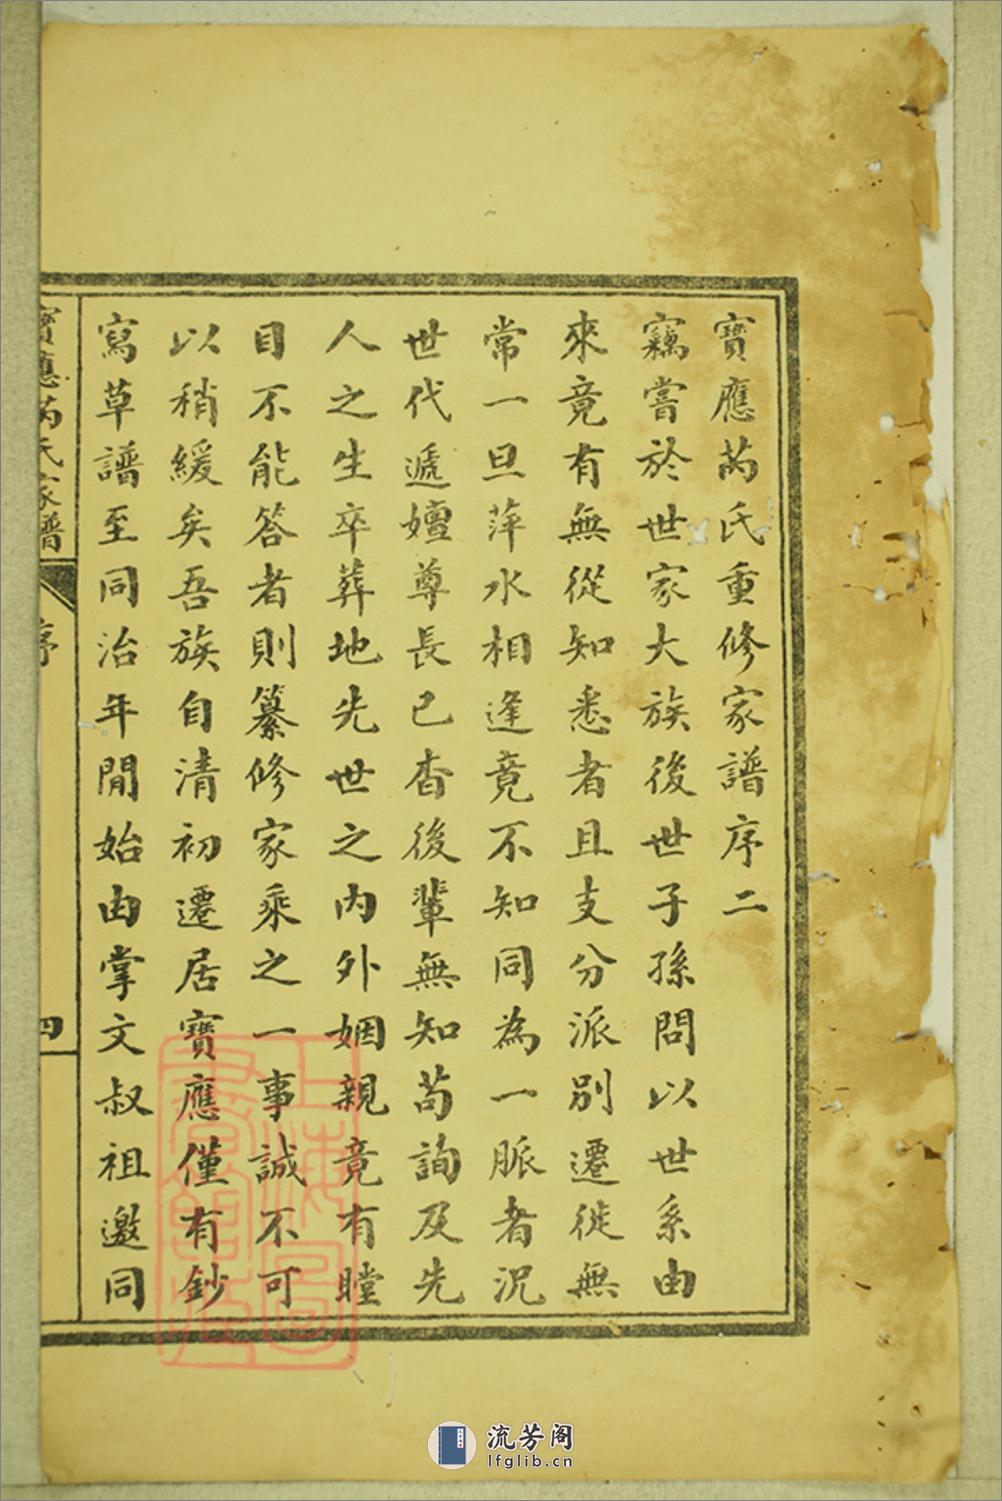 寶應芮氏重修家譜序二
竊嘗於世家大族後世子孫問以世系由
來竟有無從知悉者且支分派別遷徙無
常一旦萍水相逢竟不知同為一脈者況
世代遞嬗尊長已杳後輩無知苟詢及先
人之生卒葬地先世之內外姻親竟有瞠
目不能答者則纂修家乘之一事誠不可
以稍緩矣吾族自清初遷居寶應僅有鈔
寫草譜至同治年閒始由掌文叔祖邀同
寶應芮氏家譜
序
四
上海圖書館藏
流芳阁
lfglib.cn